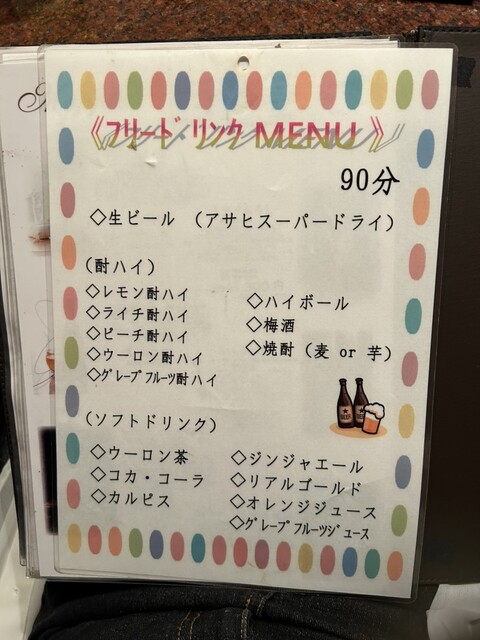 《フリードリンク MENU》
90分
◇生ビール （アサヒスーパードライ）
(酎ハイ)
◇レモン酎ハイ
◇ライチ酎ハイ
◇ピーチ酎ハイ
◇ウーロン酎ハイ
◇グレープフルーツ酎ハイ
◇ハイボール
◇梅酒
◇焼酎 (麦 or 芋)
(ソフトドリンク)
◇ウーロン茶
◇コカ・コーラ
◇カルピス
◇ジンジャエール
◇リアルゴールド
◇オレンジジュース
◇グレープフルーツジュース